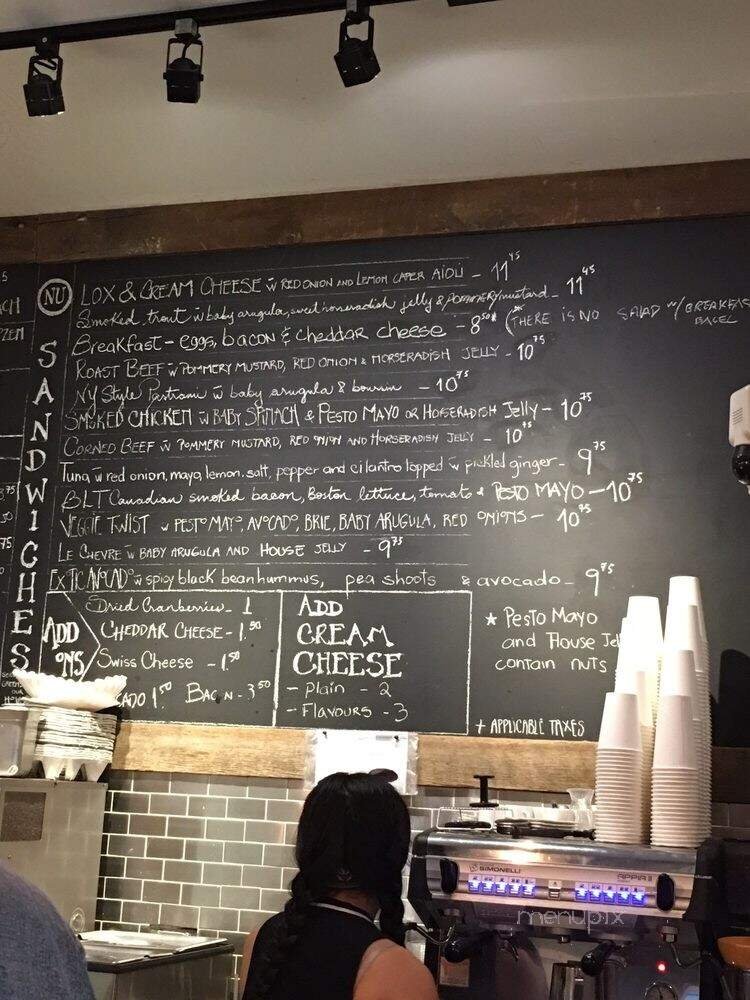 NU
SANDWICHES
LOX & CREAM CHEESE w̄ RED ONION AND LEMON CAPER AIOLI - 11 45
Smoked trout w̄ baby arugula, sweet horseradish jelly & pommery mustard - 11 45
Breakfast - eggs, bacon & cheddar cheese - 8 50* (*THERE IS NO SALAD w/ BREAKFAS
BAGEL
ROAST BEEF w̄ POMMERY MUSTARD, RED ONION & HORSERADISH JELLY - 10 75
NY Style Pastrami w̄ baby arugula & boursin - 10 75
SMOKED CHICKEN w̄ BABY SPINACH & PESTO MAYO OR HORSERADISH Jelly - 10 75
CORNED BEEF w̄ POMMERY MUSTARD, RED ONION AND HORSERADISH JELLY - 10
Tuna w̄ red onion, mayo, lemon, salt, pepper and cilantro topped w̄ pickled ginger - 9 75
BLT Canadian smoked bacon, Boston lettuce, tomato & PESTO MAYO - 10 75
VEGGIE TWIST w̄ PESTO MAYO, AVOCADO, BRIE, BABY ARUGULA, RED ONIONS - 10 75
LE CHEVRE w̄ BABY ARUGULA AND HOUSE JELLY - 9 75
EXOTIC AVOCADO w̄ spicy black bean hummus, pea shoots & avocado - 9 75
ADD ONS
Dried Cranberries - 1
CHEDDAR CHEESE - 1.50
Swiss Cheese - 1 50
CADO 1 50 BACON - 3 50
ADD
CREAM
CHEESE
- Plain - 2
- Flavours - 3
★ Pesto Mayo
and House Jel
contain nuts
+ APPLICABLE TAXES
SIMONELLI
APPIA II
menupix